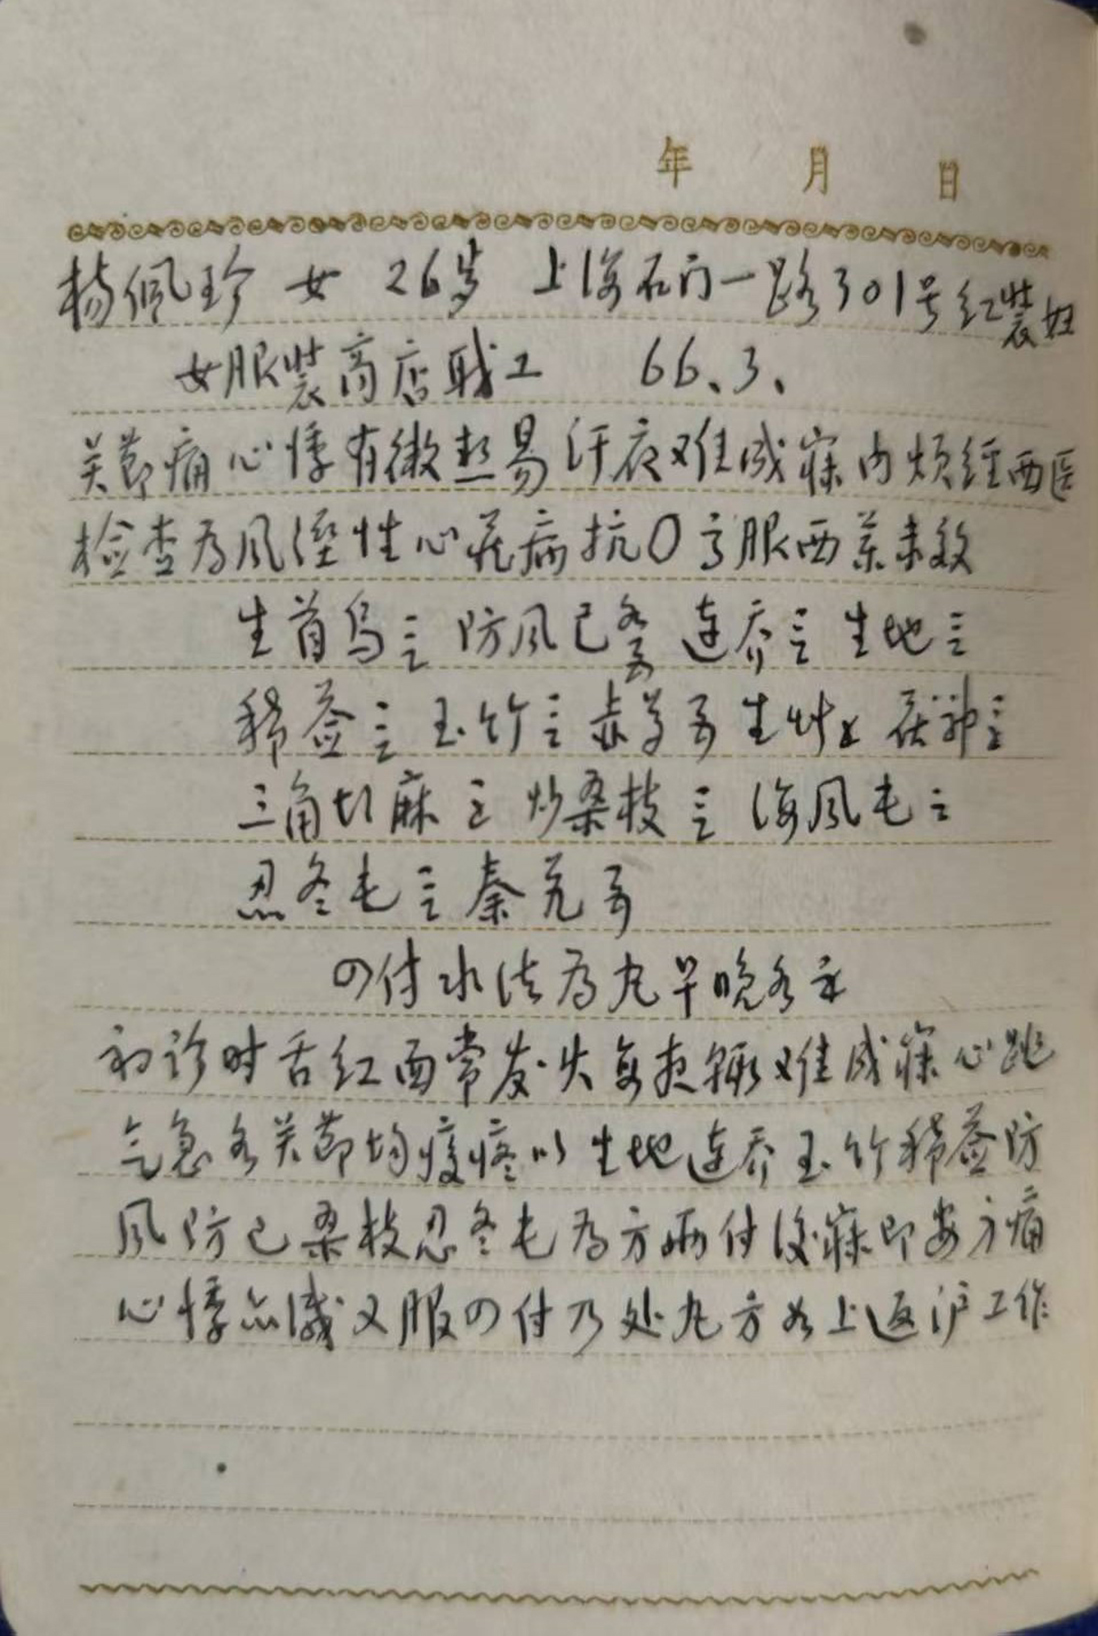 年 月 日
杨佩珍 女 26岁 上海石门一路301号红装妇
女服装商店职工 66、3、
关节痛心悸有微热易汗夜难成寐内烦经西医
检查为风湿性心脏病抗O高服西药未效
生首乌 防风已各 连乔 生地
稀莶 玉竹 赤芍 生草 茯神
三角胡麻 炒桑枝 海风屯
忍冬屯 秦艽
四付水法为丸早晚各
初诊时舌红面常发火每夜辄难成寐心跳
气急各关节均酸疼以生地连乔玉竹稀莶防
风防己桑枝忍冬屯为方两付后寐即安节痛
心悸亦减又服四付乃处丸方如上返沪工作